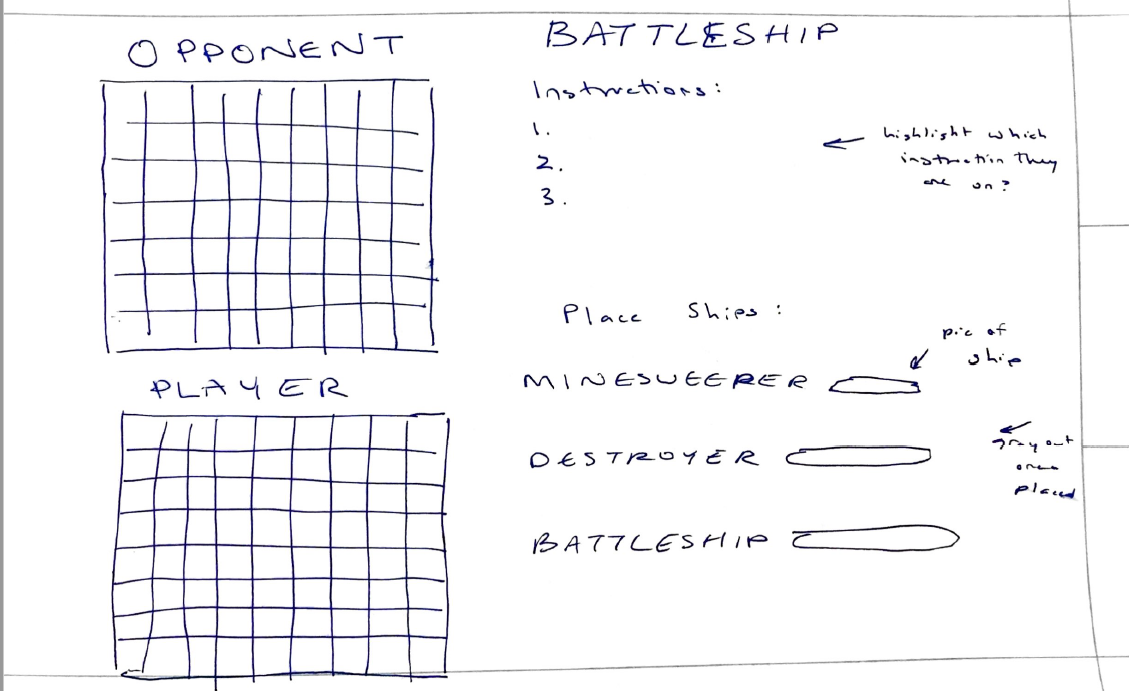 OPPONENT
BATTLESHIP
Instructions:
1.
2.
3.
highlight which
instruction they
are on?
PLAYER
Place Ships:
pic of
ship
MINESWEEPER
DESTROYER
gray out
ones
placed
BATTLESHIP